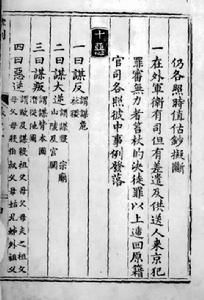 仍各照時值估鈔擬斷
一在外軍衛有司但有差遣及供送人來京犯
罪審無力者笞杖的決徒罪以上遞回原籍
官司各照彼中事例發落
十惡
一曰謀反 謂謀危
社稷
二曰謀大逆 謂謀毀 宗廟
山陵及宮闕
三曰謀叛 謂謀背本國
潛從他國
四曰惡逆 謂毆及謀殺祖父母父母夫之祖父
母父母殺伯叔父母姑兄姊外祖父